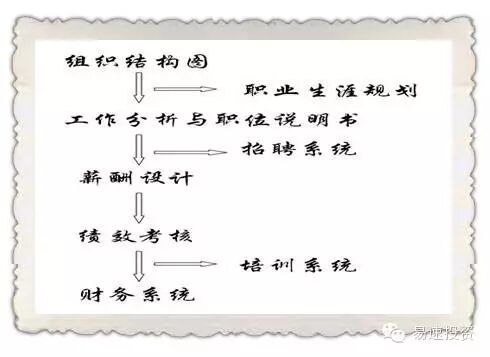 组织结构图
职业生涯规划
工作分析与职位说明书
招聘系统
薪酬设计
绩效考核
培训系统
财务系统
易速投资